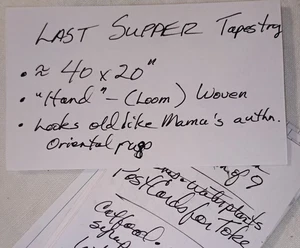 LAST SUPPER Tapestry
• ≈ 40 x 20"
• "Hand" - (Loom) Woven
• Looks old like Mama's authn.
Oriental rugs
of 9
Post Cards for